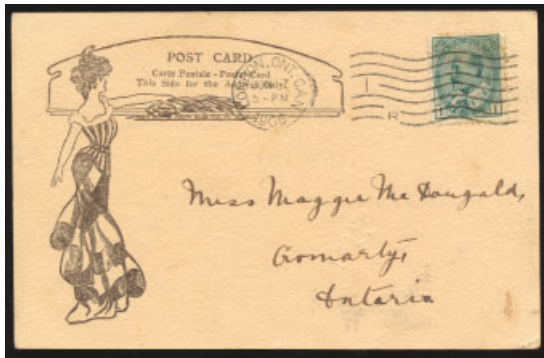 POST CARD
Carte Postale - Postal Card
This Side for the Address Only.
ONT. CAN.
5 - PM
1906
R
Miss Maggie McDougald,
Cromarty,
Ontario